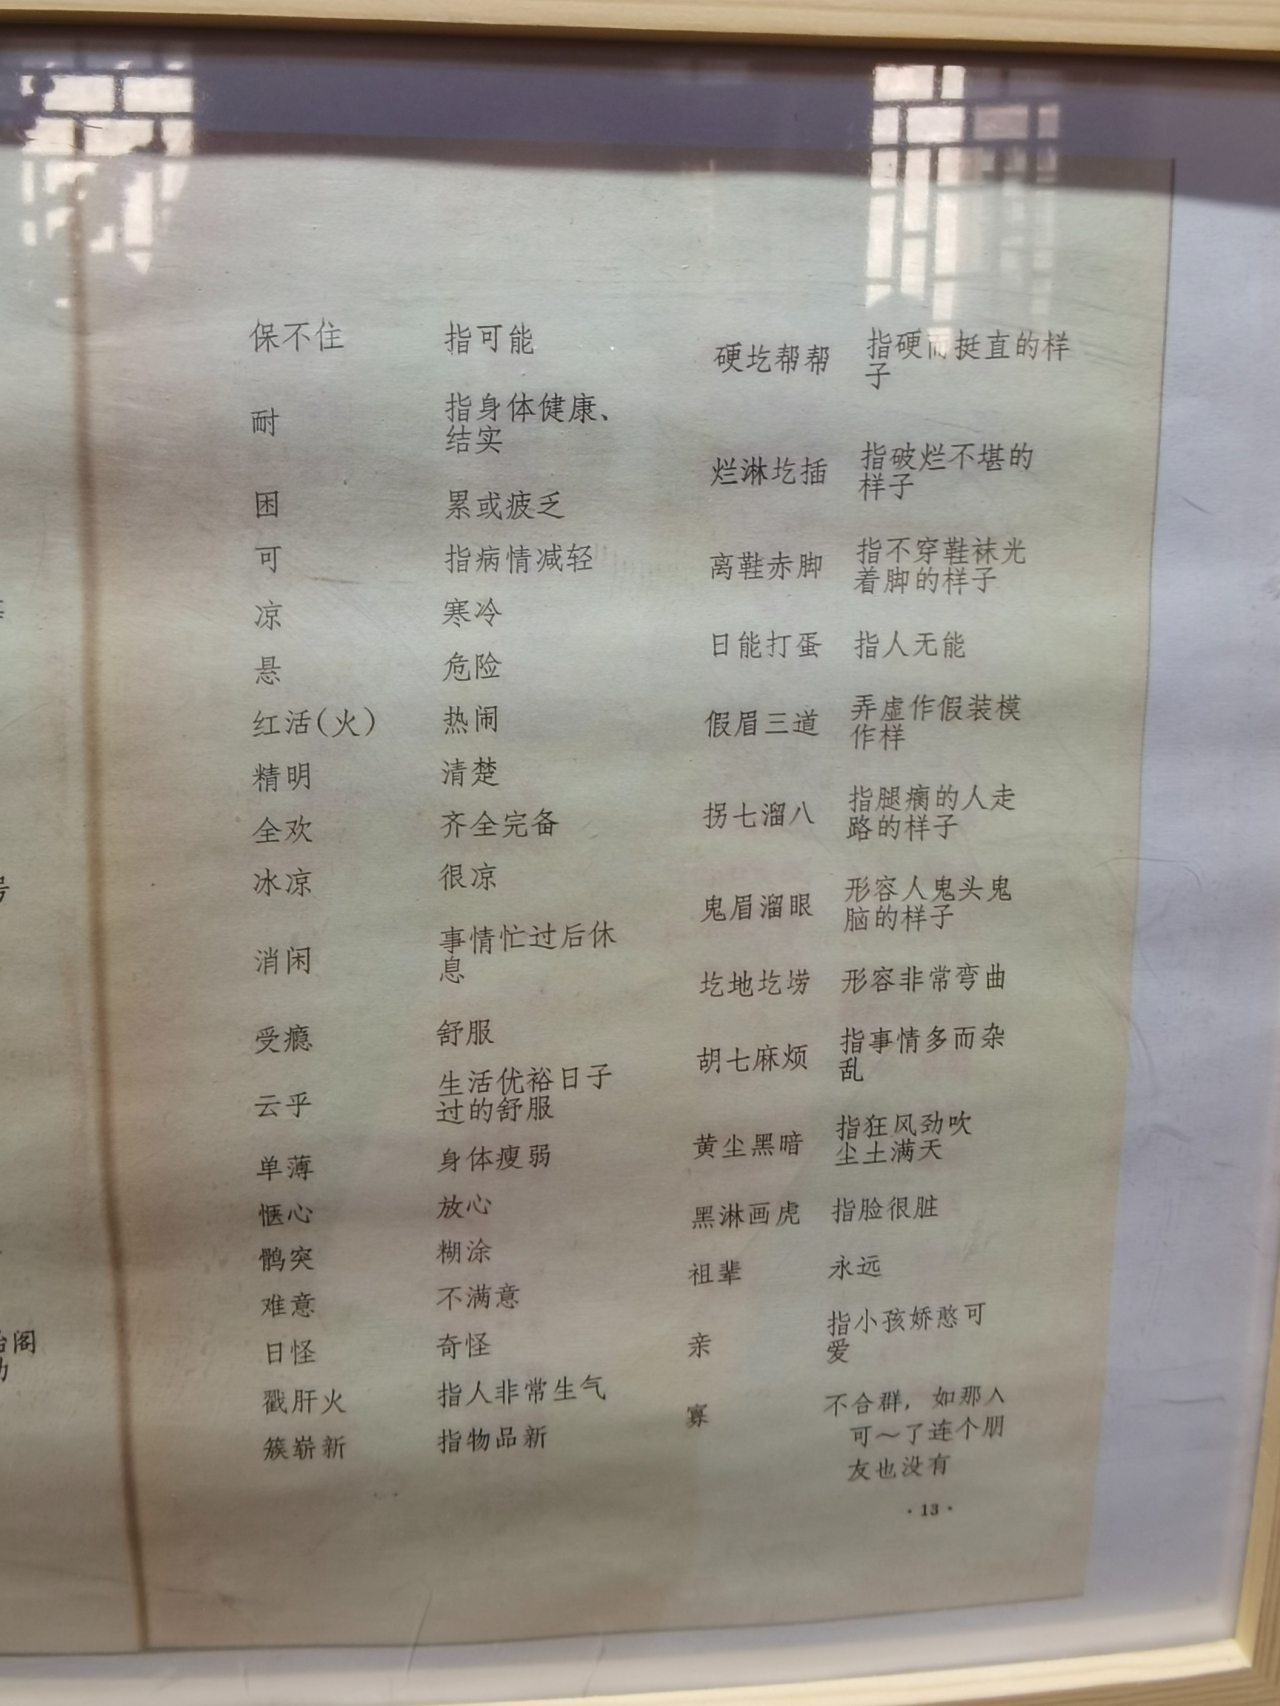 保不住 指可能
耐 指身体健康、
结实
困 累或疲乏
可 指病情减轻
凉 寒冷
悬 危险
红活(火) 热闹
精明 清楚
全欢 齐全完备
冰凉 很凉
消闲 事情忙过后休
息
受瘾 舒服
云乎 生活优裕日子
过的舒服
单薄 身体瘦弱
惬心 放心
鹘突 糊涂
难意 不满意
日怪 奇怪
戳肝火 指人非常生气
簇崭新 指物品新
硬圪帮帮 指硬而挺直的样
子
烂淋圪插 指破烂不堪的
样子
离鞋赤脚 指不穿鞋袜光
着脚的样子
日能打蛋 指人无能
假眉三道 弄虚作假装模
作样
拐七溜八 指腿瘸的人走
路的样子
鬼眉溜眼 形容人鬼头鬼
脑的样子
圪地圪捞 形容非常弯曲
胡七麻烦 指事情多而杂
乱
黄尘黑暗 指狂风劲吹
尘土满天
黑淋画虎 指脸很脏
祖辈 永远
亲 指小孩娇憨可
爱
寡 不合群，如那人
可～了连个朋
友也没有
·13·